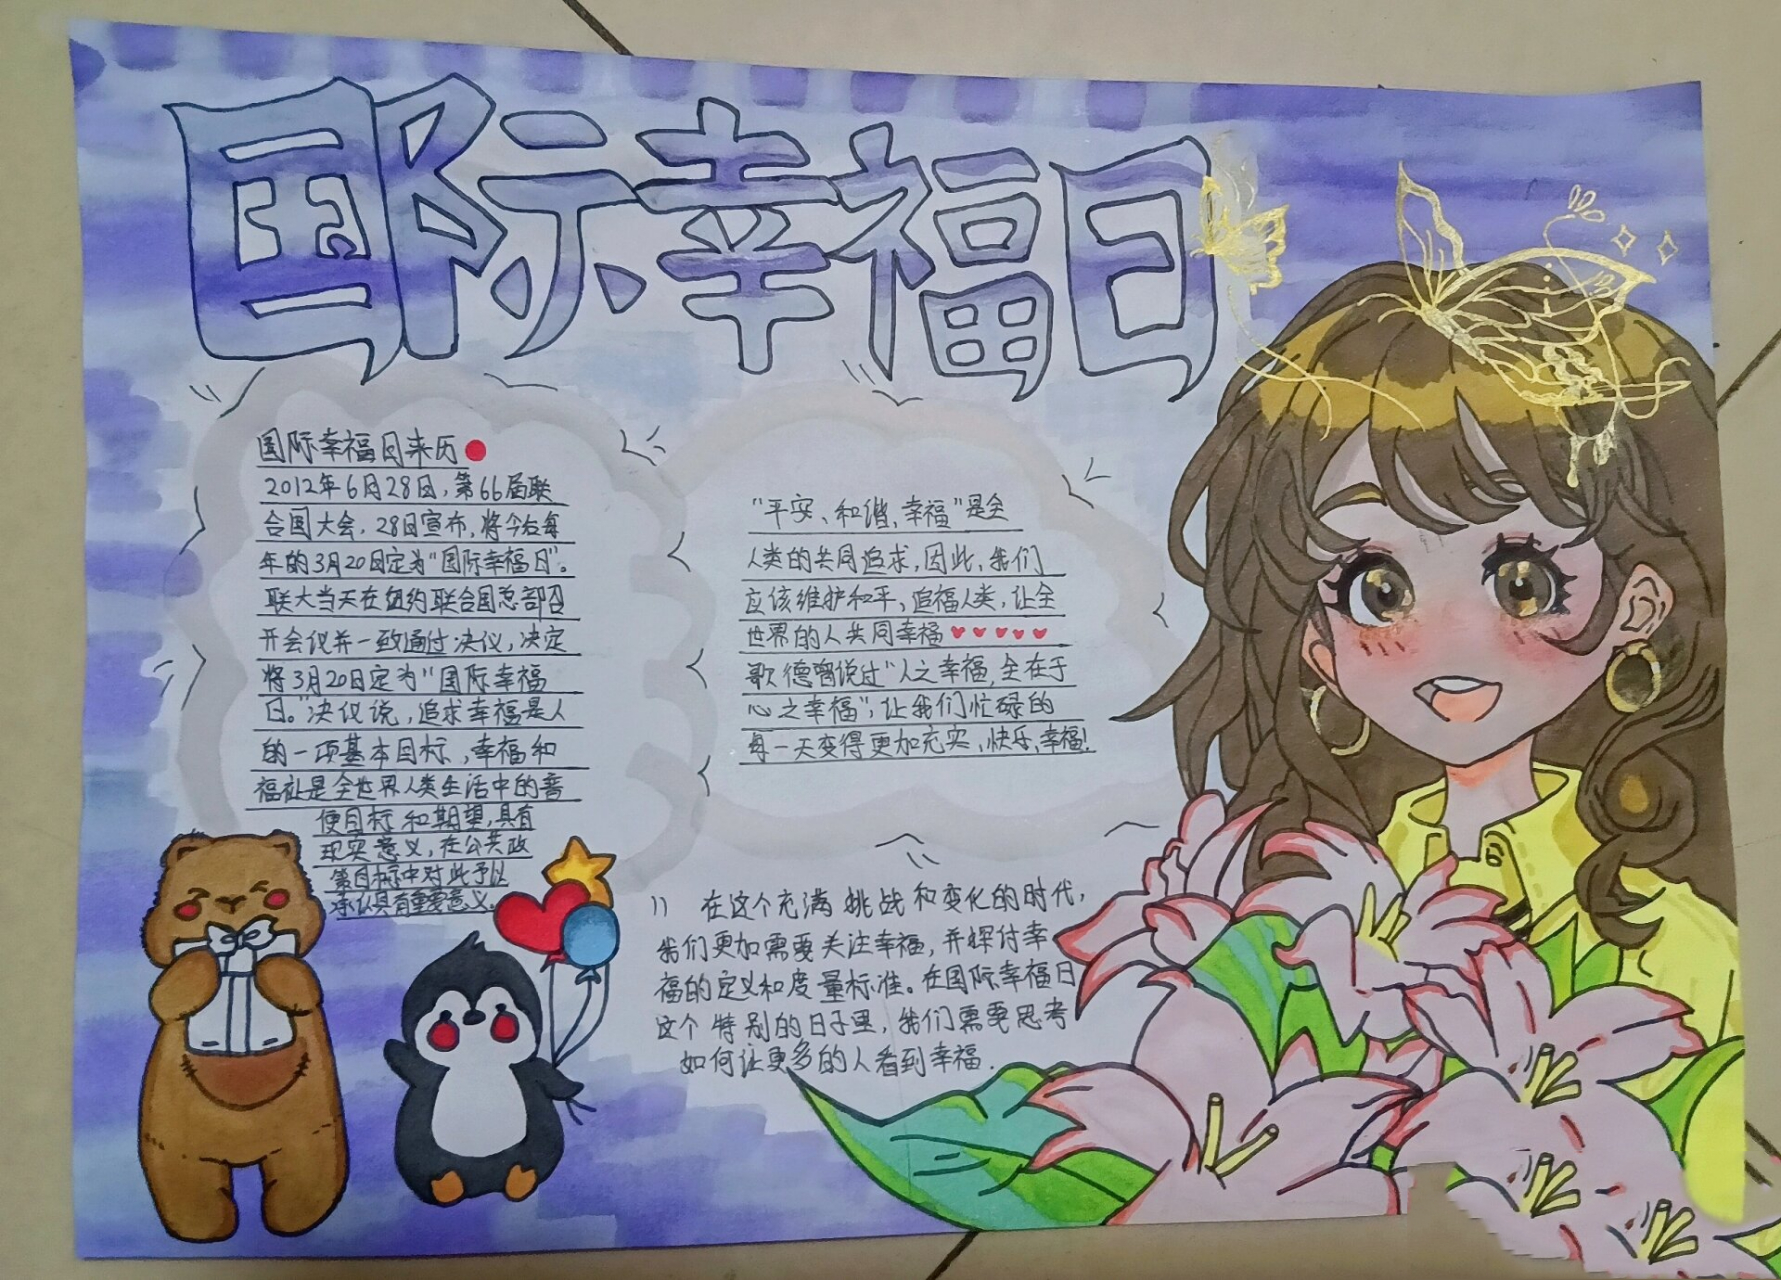 国际幸福日
国际幸福日来历
2012年6月28日,第66届联
合国大会,28日宣布,将今后每
年的3月20日定为“国际幸福日”。
联大当天在纽约联合国总部召
开会议并一致通过决议,决定
将3月20日定为“国际幸福
日。”决议说,追求幸福是人
的一项基本目标,幸福和
福祉是全世界人类生活中的普
便目标和期望,具有
现实意义,在公共政
策目标中对此予以
承认具有重要意义。
“平安、和谐、幸福”是全
人类的共同追求,因此,我们
应该维护和平,追福人类,让全
世界的人共同幸福
歌德曾说过“人之幸福,全在于
心之幸福”,让我们忙碌的
每一天变得更加充实,快乐,幸福!
在这个充满挑战和变化的时代,
我们更加需要关注幸福,并探讨幸
福的定义和度量标准。在国际幸福日
这个特别的日子里,我们需要思考
如何让更多的人看到幸福.